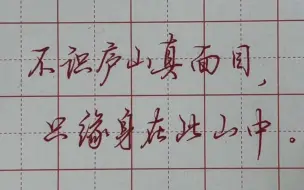 不识庐山真面目，
只缘身在此山中。